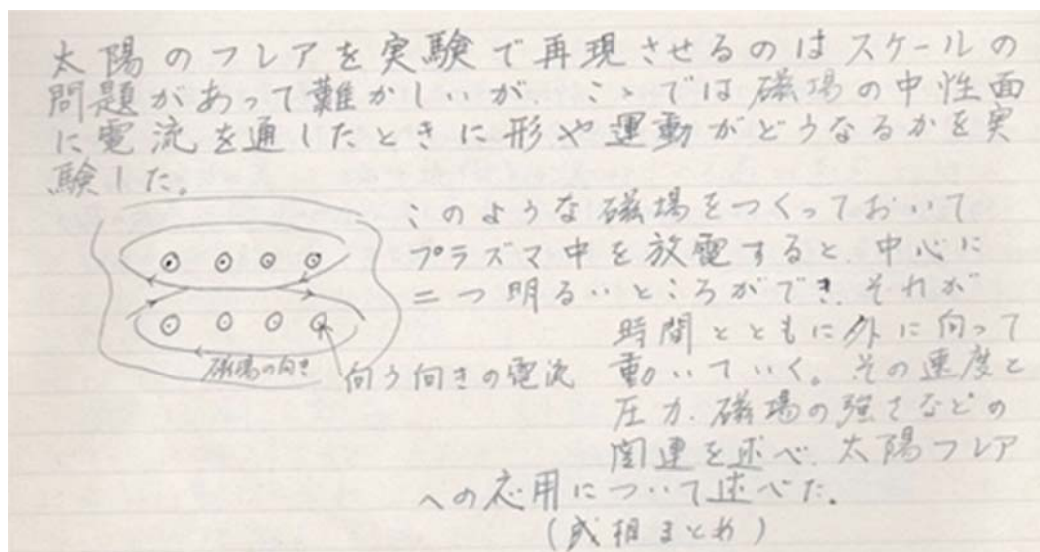 太陽のフレアを実験で再現させるのはスケールの
問題があって難かしいが、ここでは磁場の中性面
に電流を通したときに形や運動がどうなるかを実
験した。
このような磁場をつくっておいて
プラズマ中を放電すると、中心に
二つ明るいところができ、それが
時間とともに外に向って
動いていく。その速度と
圧力、磁場の強さなどの
関連を述べ、太陽フレア
への応用について述べた。
(成相まとめ)
磁場の向き
向う向きの電流